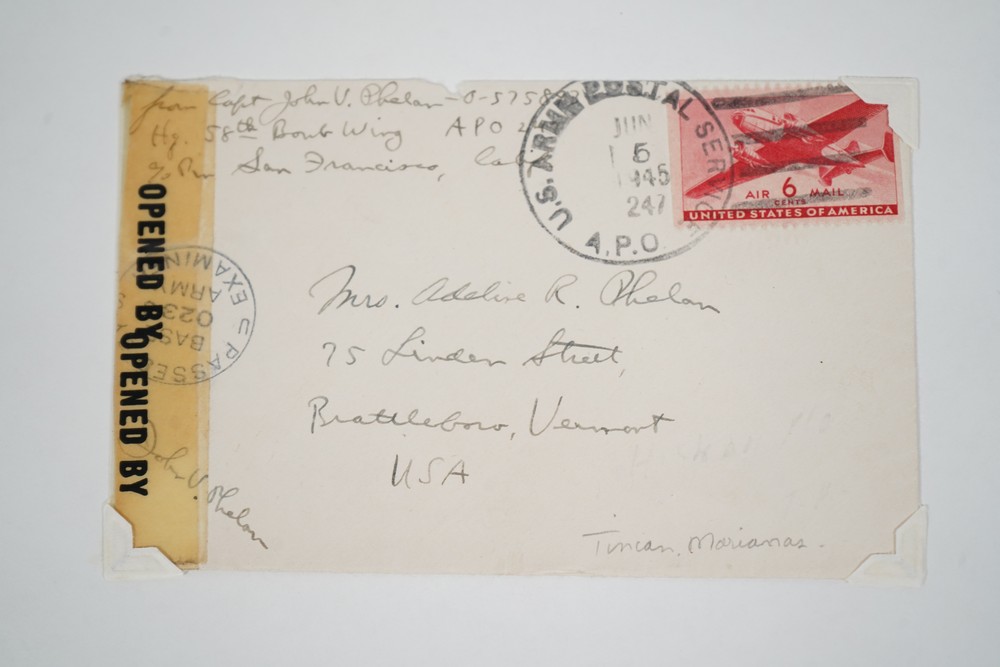 from Capt John V. Phelan - O-575
Hq. 58th Bomb Wing APO
San Francisco, Cal
U.S. ARMY POSTAL SERVICE
JUN
5
1945
247
A.P.O.
AIR 6 MAIL
CENTS
UNITED STATES OF AMERICA
OPENED BY
OPENED BY
PASSED
BAS
ARMY EXAMIN
John V. Phelan
Mrs. Adeline R. Phelan
75 Linden Street,
Brattleboro, Vermont
USA
Tinian, Marianas.